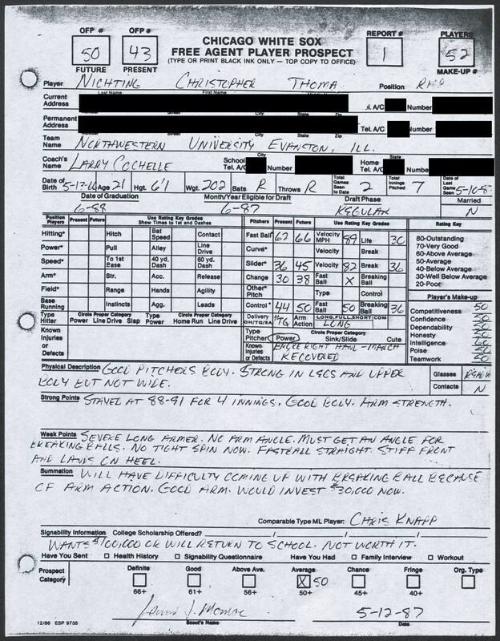 OFP # OFP # CHICAGO WHITE SOX REPORT # PLAYERS
50 43 FREE AGENT PLAYER PROSPECT 1 52
FUTURE PRESENT (TYPE OR PRINT BLACK INK ONLY — TOP COPY TO OFFICE) MAKE-UP #
Player NICHTING CHRISTOPHER THOMA Position RHP
Last Name First Name
Current Address Tel. A/C Number
City State Zip
Permanent Address Tel. A/C Number
City State Zip
Team Name NORTHWESTERN UNIVERSITY EVANSTON, ILL.
City State
Coach's Name LARRY COCHELLE School Tel. A/C Number Home Tel. A/C Number
Date of Birth 5-13-66 Age 21 Hgt. 6'1 Wgt. 202 Bats R Throws R Total Games Seen to Date 2 Total Innings Pitched 7 Date of Last Game Seen 5-10-87
Date of Graduation Month/Year Eligible for Draft Draft Phase Married
6-88 6-87 REGULAR N
Position Players Present Future Use Rating Key Grades Show Times to 1st and Dash Pitchers Present Future Use Rating Key Grades Rating Key
Hitting* Hitch Bat Speed Contact Fast Ball* 62 66 Velocity MPH 89 Life 30 80-Outstanding
Power* Pull Alley Line Drive Curve* Velocity Breaking 70-Very Good
60-Above Average
Speed* To 1st Base 40 yd. Dash 60 yd. Dash Slider* 36 45 Velocity 82 Break 36 50-Average
Arm* Str. Acc. Release Change 30 38 Fast Ball X Breaking Ball 40-Below Average
30-Well Below Average
Field* Range Hands Agility Other* Pitch Type Control 20-Poor
Base Running Instincts Agg. Leads Control* 44 50 Fast Ball 50 Breaking Ball 36 Player's Make-up
Type Hitter Circle Proper Category Power Line Drive Slap Type Power Circle Proper Category Home Run Line Drive Delivery OH/TQ/SA TQ Arm Action LONG, FULL, SHORT, COM LONG Competitiveness 50
Confidence 50
Known Injuries or Defects Type Pitcher Circle Proper Category Power Sink/Slide Cute Dependability 50
Known Injuries or Defects HAIR – MARCH RECOVERED Honesty 50
Intelligence 60
Poise 50
Teamwork 50
Physical Description GOOD PITCHERS BODY. STRONG IN LEGS AND UPPER Glasses
BODY BUT NOT WIDE. Contacts N
Strong Points STAYED AT 88-91 FOR 4 INNINGS. GOOD BODY. ARM STRENGTH.
Weak Points SEVERE LONG ARMER. NO ARM ANGLE. MUST GET AN ANGLE FOR
BREAKING BALLS. NO TIGHT SPIN NOW. FASTBALL STRAIGHT. STIFF FRONT
AND LANDS ON HEEL.
Summation WILL HAVE DIFFICULTY COMING UP WITH BREAKING BALL BECAUSE
OF ARM ACTION. GOOD ARM. WOULD INVEST $30,000 NOW.
Comparable Type ML Player: CHRIS KNAPP
Signability Information College Scholarship Offered?
WANTS $100,000 OR WILL RETURN TO SCHOOL. NOT WORTH IT.
Have You Sent Health History Signability Questionnaire Have You Had Family Interview Workout
Prospect Category Definite Good Above Ave. Average Chance Fringe Org. Type
X 50
66+ 61+ 56+ 50+ 45+ 40+
5-12-87
12/86 ESP 9735 Scout's Name Date